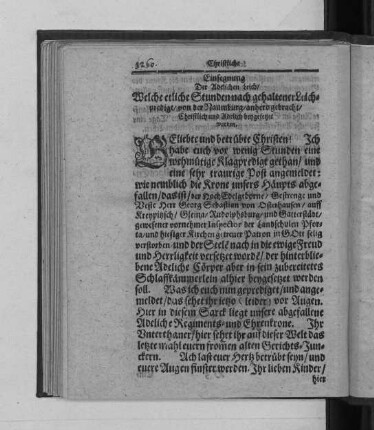 Christliche
Einsegnung
Der Adelichen Leich/
Welche etliche Stunden nach gehaltener Leich-
predigt/ von der Naumburg/ anhero gebracht/
Christlich und Adelich beygesetzt
worden.
GEliebte und betrübte Christen/ Ich
habe euch vor wenig Stunden eine
wehmütige Klagpredigt gethan/ und
eine sehr traurige Post angemeldet:
wie nemblich die Krone unsers Häupts abge-
fallen/ das ist/ der HochEdelgeborne/ Gestrenge und
Veste Herr Georg Sebastian von Osterhausen/ auff
Kreypitzsch/ Gleina/ Rudolphsburg/ und Gatterstädt/
gewesener vornehmer Inspector der Landschulen Pfor-
ta/ und hiesiger Kirchen getreuer Patron in GOtt selig
verstorben/ und der Seele nach in die ewige Freud
und Herrligkeit versetzt worden/ der hinterblie-
bene Adeliche Cörper aber in sein zubereitetes
Schlaffkämmerlein alhier beygesetzet werden
soll. Was ich euch nun geprediget/ und ange-
meldet/ das sehet ihr jetzo (leider) vor Augen.
Hier in diesem Sarck liegt unsere abgefallene
Adeliche Regiments- und Ehrenkrone. Ihr
Unterthaner/ hier sehet ihr auff dieser Welt das
letzte mahl euern fromen alten Gerichts-Jun-
ckern. Ach last euer Hertz betrübt seyn/ und
euere Augen finster werden. Ihr lieben Kinder/
hier